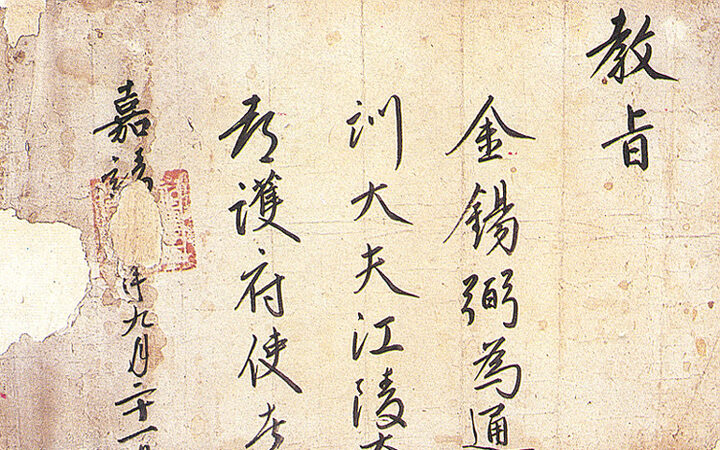 教旨
金錫弼為通
訓大夫江陵大
都護府使者
嘉靖 年九月二十一日